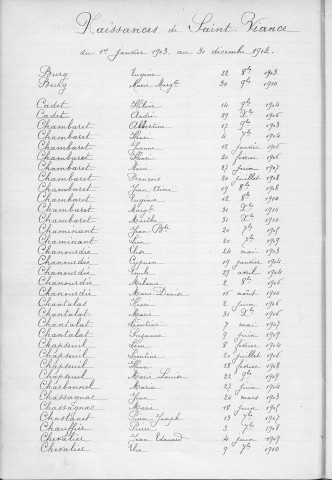 Naissances de Saint-Viance
du 1er Janvier 1903 au 31 décembre 1912.
Burg Eugène 22 1903
Burg Marie 30 9bre 1910
Cadet Hélène 14 9bre 1904
Cadet André 29 Xbre 1906
Chambaret Albertine 17 1903
Chambaret 4 1904
Chambaret Jeanne 12 janvier 1906
Chambaret 20 février 1906
Chambaret Marie 27 juin 1907
Chambaret François 20 juillet 1908
Chambaret Jean 19 8bre 1908
Chambaret Eugénie 12 8bre 1910
Chambaret 31 Xbre 1910
Chambaret Marthe 31 Xbre 1910
Chaminant Jean Bte 20 1905
Chaminant Léon 20 7bre 1909
Chanourdie 24 mai 1903
Chanourdie Cyprien 19 janvier 1904
Chanourdie Emile 29 avril 1904
Chanourdie 2 1906
Chanourdie Marie 15 août 1910
Chantalat 2 juin 1906
Chantalat Marie 31 Xbre
Chantalat 7 mai 1907
Chantalat Suzanne 9 juin 1909
Chapseuil Léon 8 février 1904
Chapseuil Léontine 20 juillet 1906
Chapseuil 28 février 1908
Chapseuil Marie Louise 22 1909
Charbonnel Maria 27 juin 1904
Chassagnac Jean 20 mars 1903
Chassagnac Marie 18 juin 1905
Chastanet Pierre Joseph 17 1907
Chauffier Pierre 3 7bre 1908
Chevalier Jean Edouard 4 juin 1909
Chevalier 9 7bre 1910